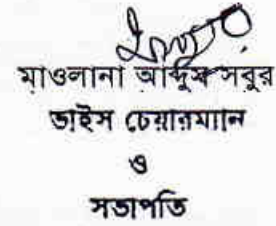 মাওলানা আব্দুস সবুর
ভাইস চেয়ারম্যান
ও
সভাপতি